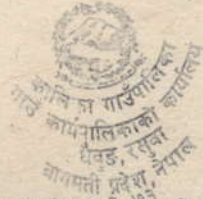 कालिका गाउँपालिका
गाउँ कार्यपालिकाको कार्यालय
धैवुङ, रसुवा
बागमती प्रदेश, नेपाल